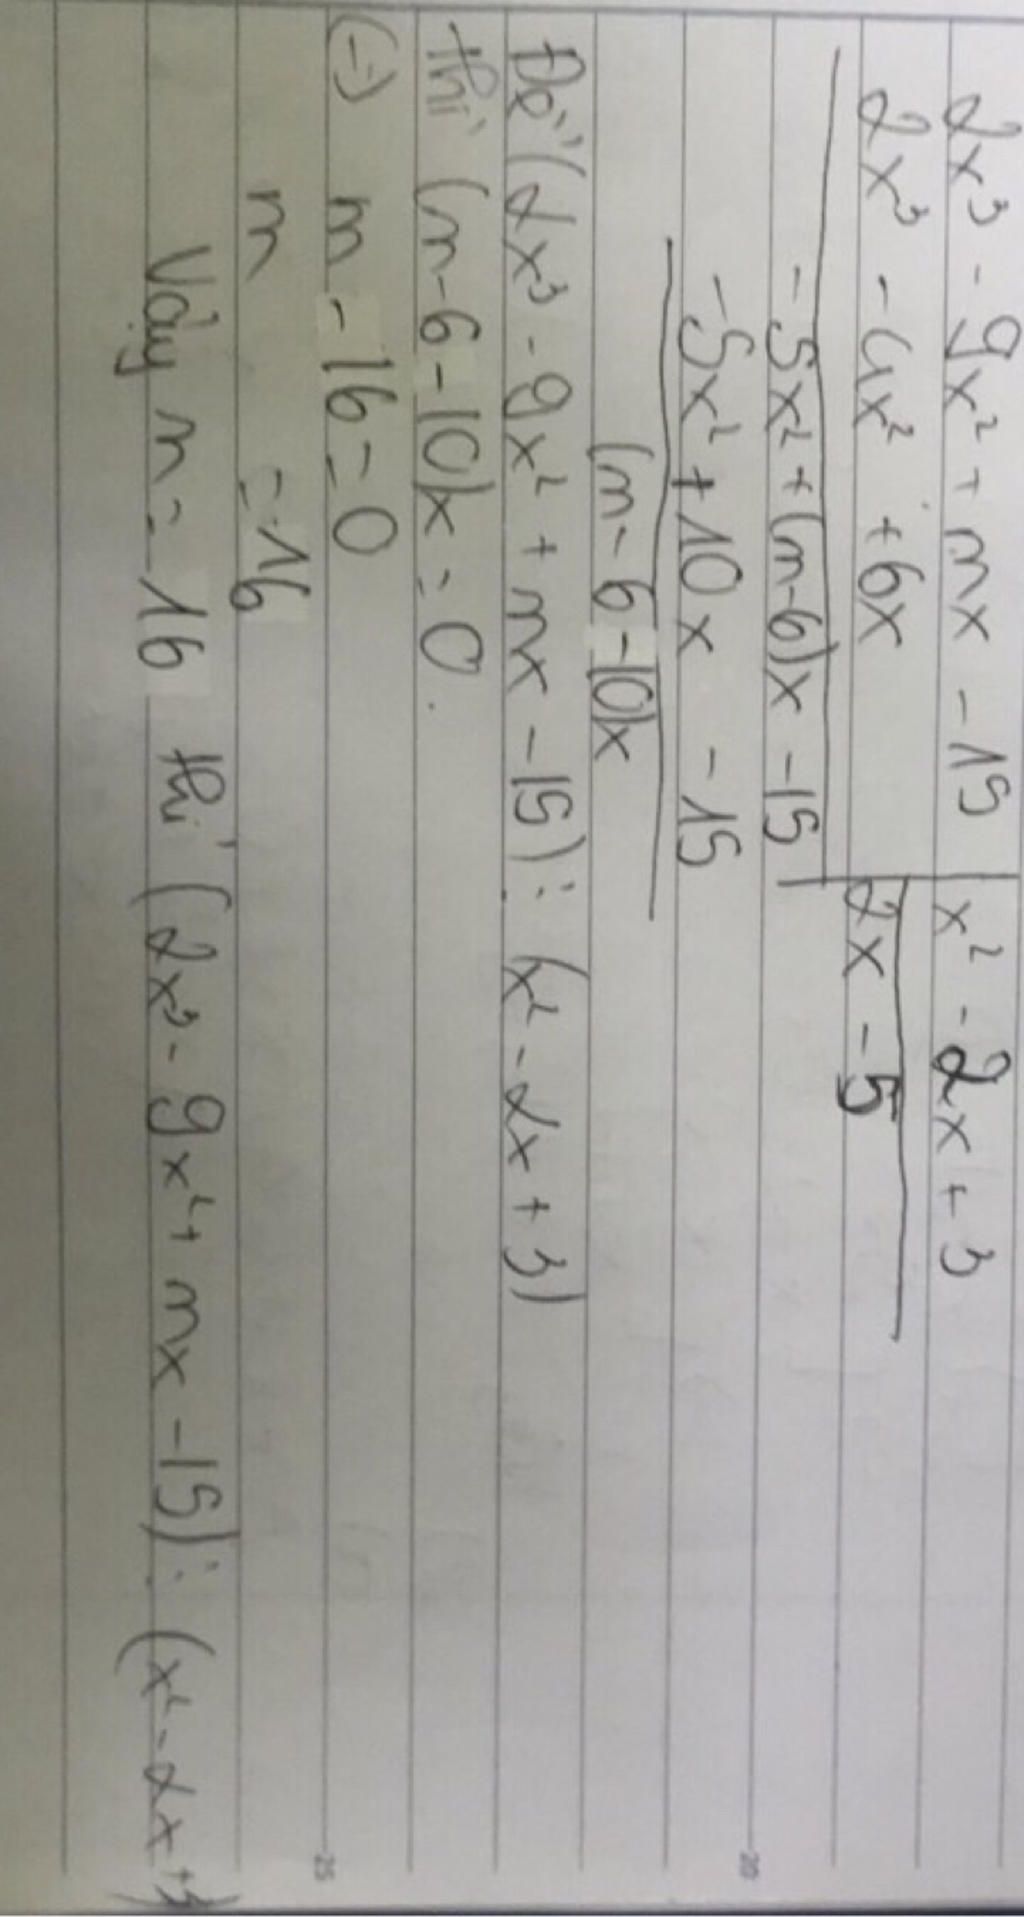 2x³ - 9x² + mx - 15 | x² - 2x + 3
2x³ - 4x² + 6x | 2x - 5
- 5x² + (m-6)x - 15
- 5x² + 10x - 15
(m - 6 - 10)x
Để (2x³ - 9x² + mx - 15) ⋮ (x² - 2x + 3)
thì (m - 6 - 10)x = 0.
(=) m - 16 = 0
m = 16
Vậy m = 16 thì (2x³ - 9x² + mx - 15) ⋮ (x² - 2x + 3)
20
25